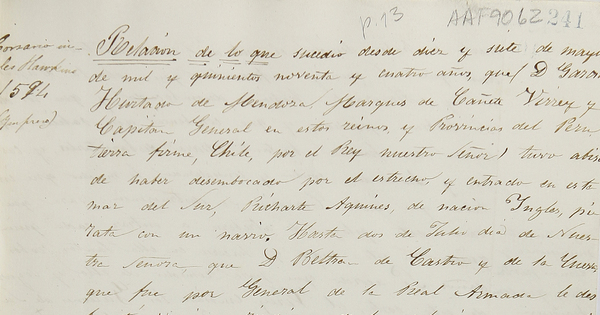 p. 13
AAF9062 241
Corsario in-
gles Hawkins
1594
(Impreso)
Relación de lo que sucedio desde diez y siete de mayo
de mil y quinientos noventa y cuatro años, que (D Garcia
Hurtado de Mendoza, Marques de Cañete Virrey y
Capitan General en estos reinos, y Provincias del Peru
tierra firme, Chile, por el Rey nuestro Señor) tuvo abiso
de haber desembocado por el estrecho, y entrado en este
mar del Sur, Richarte Aquines, de nacion Ingles, pi-
rata con un navio. Hasta dos de Julio dia de Nues-
tra señora, que D Beltran de Castro y de la Cueva,
que fue por General de la Real Armada le des